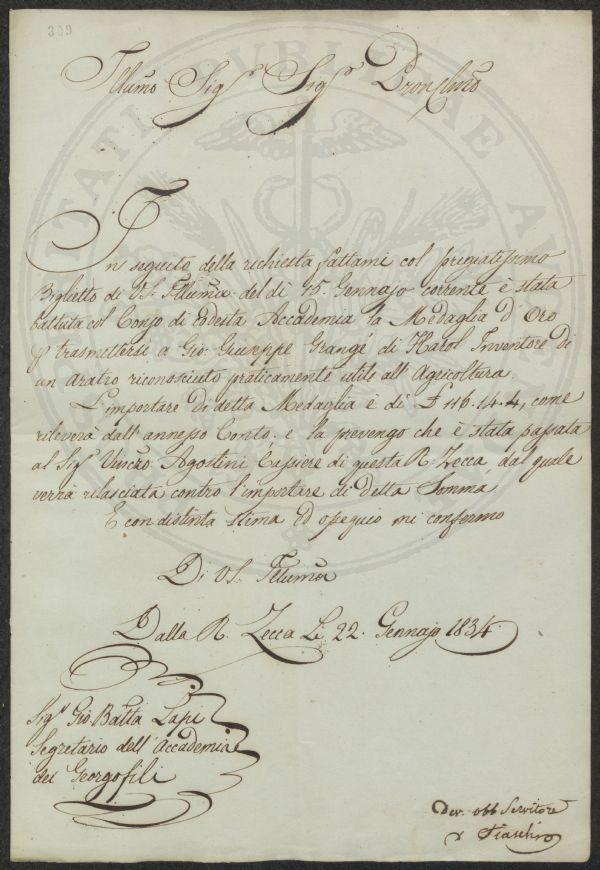 309
Illumo Sigr Sigr Pron Clmo
In seguito della richiesta fattami col pregiatissimo
Biglietto di VS. Illuma del dì 15 Gennajo corrente è stata
battuta col Conjo di codesta Accademia la Medaglia d'Oro
p trasmettersi a Gio: Giuseppe Grangé di Harol Inventore di
un aratro riconosciuto praticamente utile all'Agricoltura
L'importare di detta Medaglia è di £ 116.14.4, come
rileverà dall'annesso Conto, e la prevengo che è stata passata
al Sigr Vinczo Agostini Cassiere di questa R. Zecca dal quale
verrà rilasciata contro l'importare di detta Somma
E con distinta stima ed ossequio mi confermo
Di VS. Illuma
Dalla R. Zecca Li 22. Gennajo 1834
Sigr Gio Batta Lapi
Segretario dell'Accademia
dei Georgofili
Dev. obb Servitore